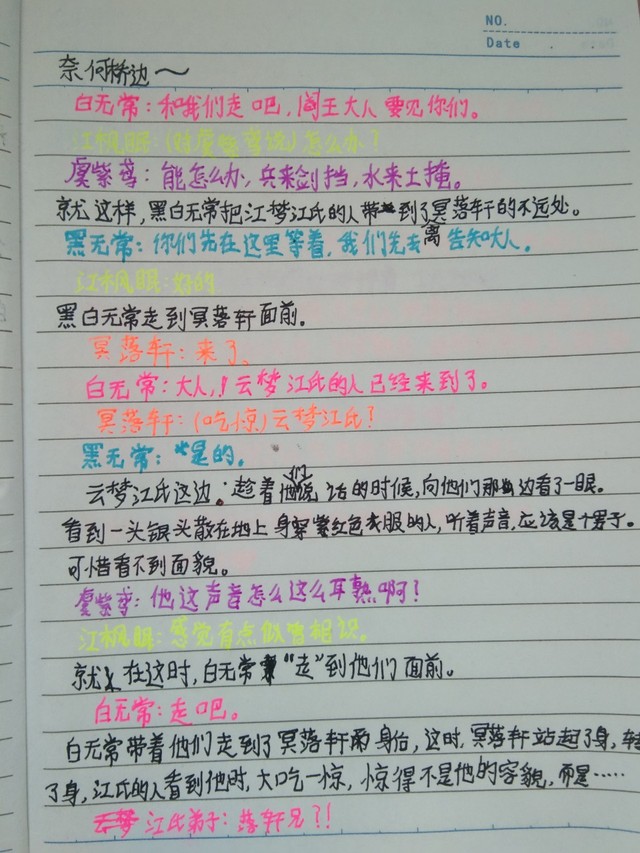 NO.
Date
奈何桥边～
白无常：和我们走吧，阎王大人要见你们。
江枫眠：(对虞紫鸢说)怎么办？
虞紫鸢：能怎么办，兵来剑挡，水来土掩。
就这样，黑白无常把江梦江氏的人带到了冥落轩的不远处。
黑无常：你们先在这里等着，我们先去离告知大人。
江枫眠：好的
黑白无常走到冥落轩面前。
冥落轩：来了、
白无常：大人，！云梦江氏的人已经来到了。
冥落轩：(吃惊)云梦江氏？
黑无常：是的。
云梦江氏这边：趁着他们说话的时候，向他们那边看了一眼。
看到一头银头散在地上身穿紫红色衣服的人，听着声音，应该是个男子。
可惜看不到面貌。
虞紫鸢：他这声音怎么这么耳熟啊？
江枫眠：感觉有点似曾相识。
就在这时，白无常“走”到他们面前。
白无常：走吧。
白无常带着他们走到了冥落轩身后，这时，冥落轩站起了身，转
了身，江氏的人看到他时，大吃一惊，惊得不是他的容貌，而是……
江氏弟子：落轩兄？！